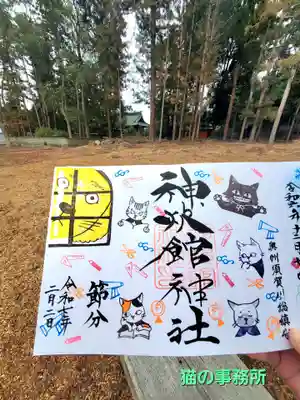 奥州須賀川総鎮守
神炊館神社
節分
二月二日
猫の事務所